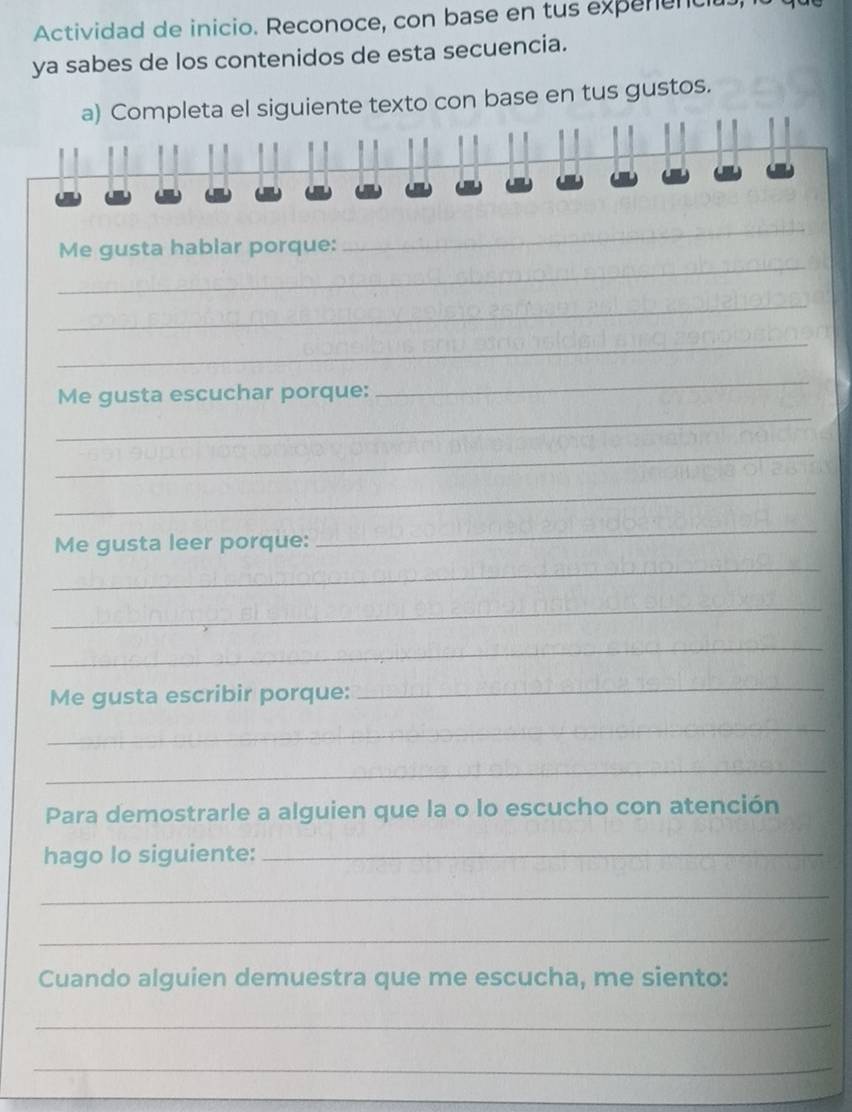 Actividad de inicio. Reconoce, con base en tus
ya sabes de los contenidos de esta secuencia.
a) Completa el siguiente texto con base en tus gustos.
Me gusta hablar porque:
Me gusta escuchar porque:
Me gusta leer porque:
Me gusta escribir porque:
Para demostrarle a alguien que la o lo escucho con atención
hago lo siguiente:
Cuando alguien demuestra que me escucha, me siento: